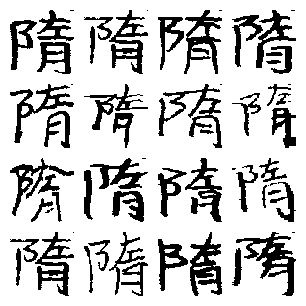 隋隋隋隋
隋隋隋隋
隋隋隋隋
隋隋隋隋